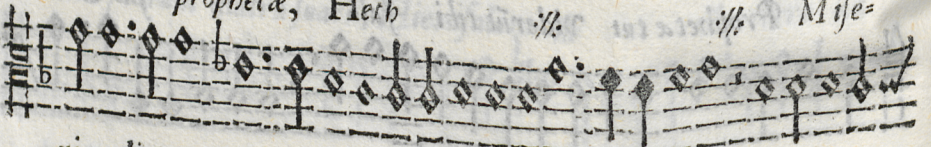 prophetæ, Heth :||: :||: Mise=